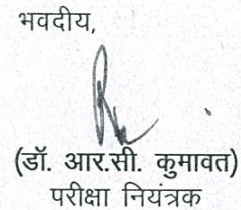 भवदीय,
(डॉ. आर.सी. कुमावत)
परीक्षा नियंत्रक